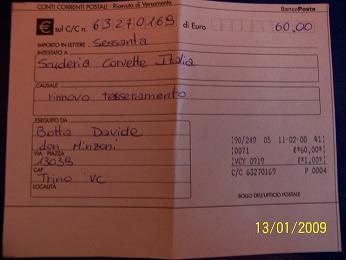 CONTI CORRENTI POSTALI - Ricevuta di Versamento BancoPosta
€ sul C/C n. 63270169 di Euro 60,00
IMPORTO IN LETTERE Sessanta
INTESTATO A
Scuderia Corvette Italia
CAUSALE
rinnovo tesseramento
ESEGUITO DA
Botta Davide
don Minzoni
VIA - PIAZZA
13039
CAP
Trino VC
LOCALITÀ
90/249 05 11-02-08 41
0071 €*60,00
VCY 0919 €*1,00
C/C 63270169 P 0004
BOLLO DELL'UFFICIO POSTALE
13/01/2009